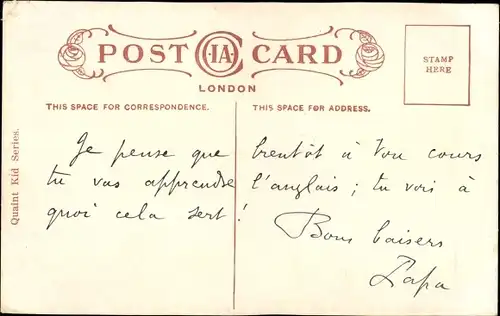 POST CARD
LONDON
STAMP
HERE
THIS SPACE FOR CORRESPONDENCE.
THIS SPACE FOR ADDRESS.
Quaint Kid Series.
Je pense que bientôt à ton cours
tu vas apprendre l'anglais ; tu vois à
quoi cela sert !
Bons baisers
Papa